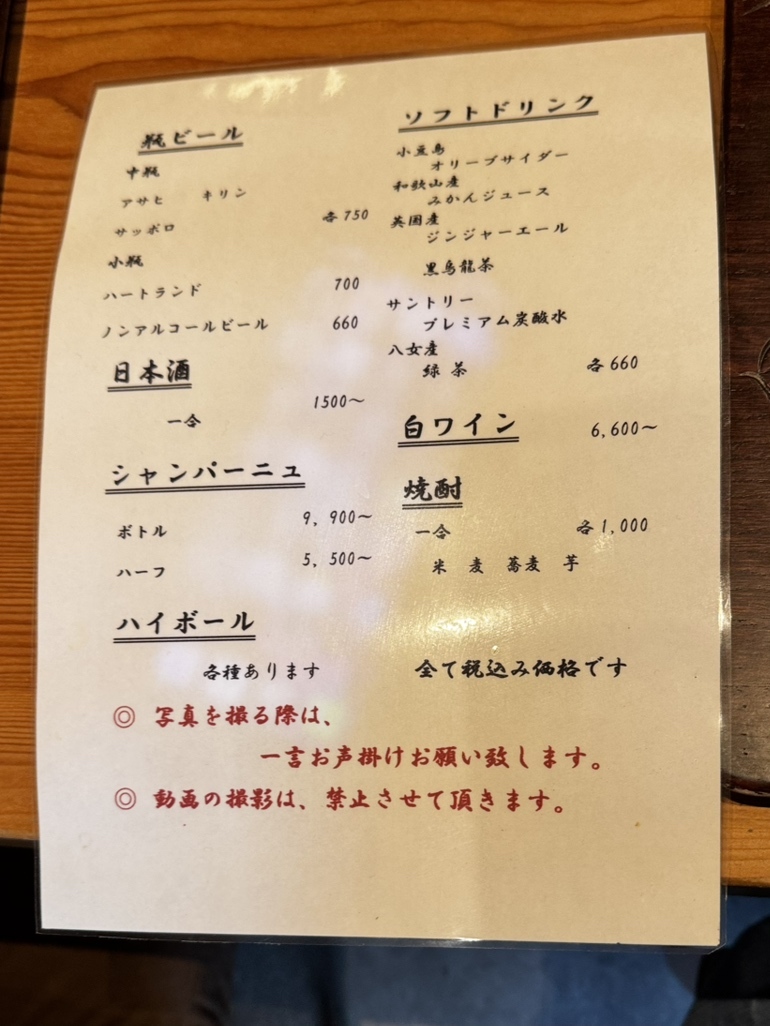 瓶ビール
中瓶
アサヒ キリン
サッポロ 各750
小瓶
ハートランド 700
ノンアルコールビール 660
日本酒
一合 1500～
シャンパーニュ
ボトル 9,900～
ハーフ 5,500～
ハイボール
各種あります
ソフトドリンク
小豆島
オリーブサイダー
和歌山産
みかんジュース
英国産
ジンジャーエール
黒烏龍茶
サントリー
プレミアム炭酸水
八女産
緑茶 各660
白ワイン 6,600～
焼酎
一合 各1,000
米 麦 蕎麦 芋
全て税込み価格です
◎ 写真を撮る際は、
一言お声掛けお願い致します。
◎ 動画の撮影は、禁止させて頂きます。